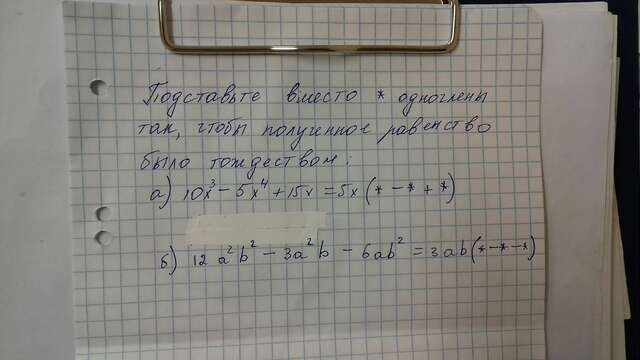 Подставьте вместо * одночлены
так, чтобы полученное равенство
было тождеством:
а) 10x³ - 5x⁴ + 15x = 5x (* - * + *)
б) 12 a²b² - 3a²b - 6ab² = 3ab (* - * - *)